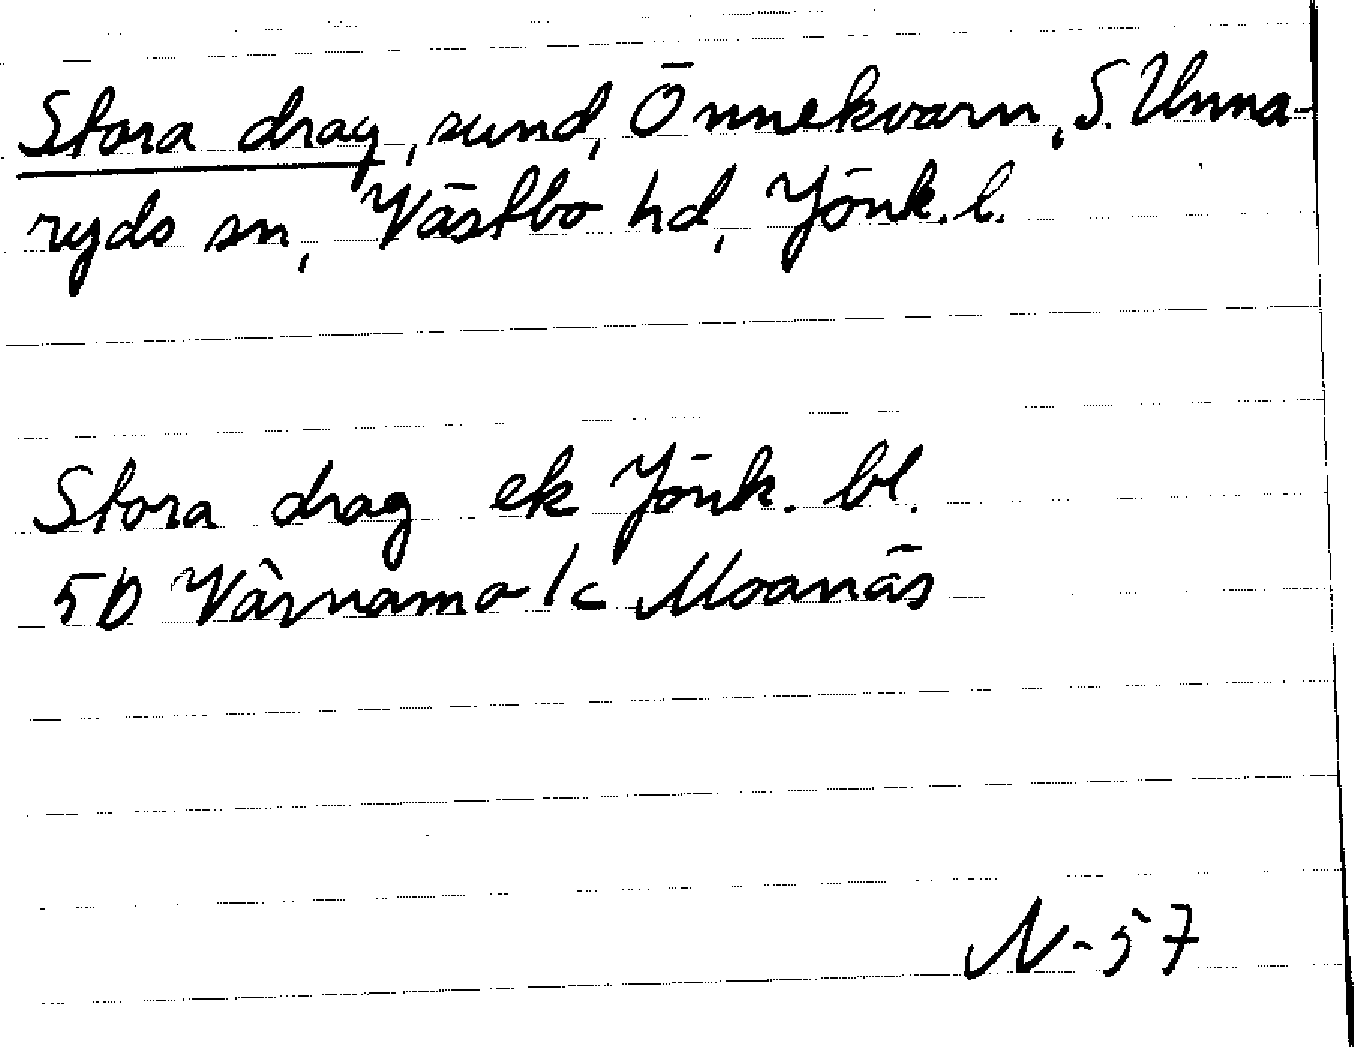 Stora drag, sund, Önnekvarn, S. Unna-
ryds sn, Västbo hd, Jönk. l.
Stora drag ek Jönk. bl.
5D Värnamo 1c Moanäs
N-57